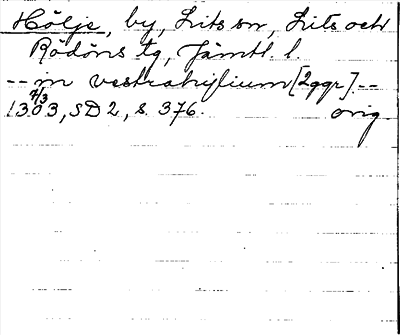 Hölje, by, Lits sn, Lits och
Rödöns tg, Jämtl. l.
-- in vestrahylium [2ggr] --
1303 7/3, SD 2, s. 376. orig